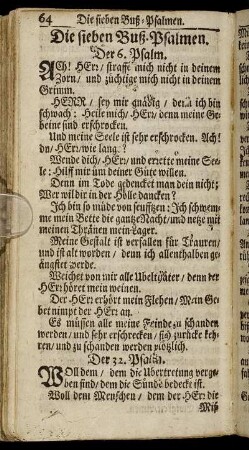 64 Die sieben Buß-Psalmen.
Die sieben Buß-Psalmen.
Der 6. Psalm.
ACh! HErr/ straff mich nicht in deinem
Zorn/ und züchtige mich nicht in deinem
Grimm.
HERR/ sey mir gnädig/ denn ich bin
schwach: Heile mich/ HErr/ denn meine Ge-
beine sind erschrocken.
Und meine Seele ist sehr erschrocken. Ach!
du/ HErr/ wie lang?
Wende dich/ HErr/ und errette meine See-
le: Hilff mir um deiner Güte willen.
Denn im Tode gedencket man dein nicht;
Wer wil dir in der Hölle dancken?
Ich bin so müde von seufftzen: Ich schwem-
me mein Bette die gantze Nacht/ und netze mit
meinen Thränen mein Lager.
Meine Gestalt ist verfallen für Trauren/
und ist alt worden/ denn ich allenthalben ge-
ängstet werde.
Weichet von mir alle Ubelthäter/ denn der
HErr höret mein weinen.
Der HErr erhört mein Flehen/ Mein Ge-
bet nimpt der HErr an.
Es müssen alle meine Feinde zu schanden
werden/ und sehr erschrecken/ sich zurücke keh-
ren/ und zu schanden werden plötzlich.
Der 32. Psalm.
WOll dem/ dem die Ubertretung verge-
ben sind/ dem die Sünde bedecket ist.
Woll dem Menschen/ dem der HErr die
Miß